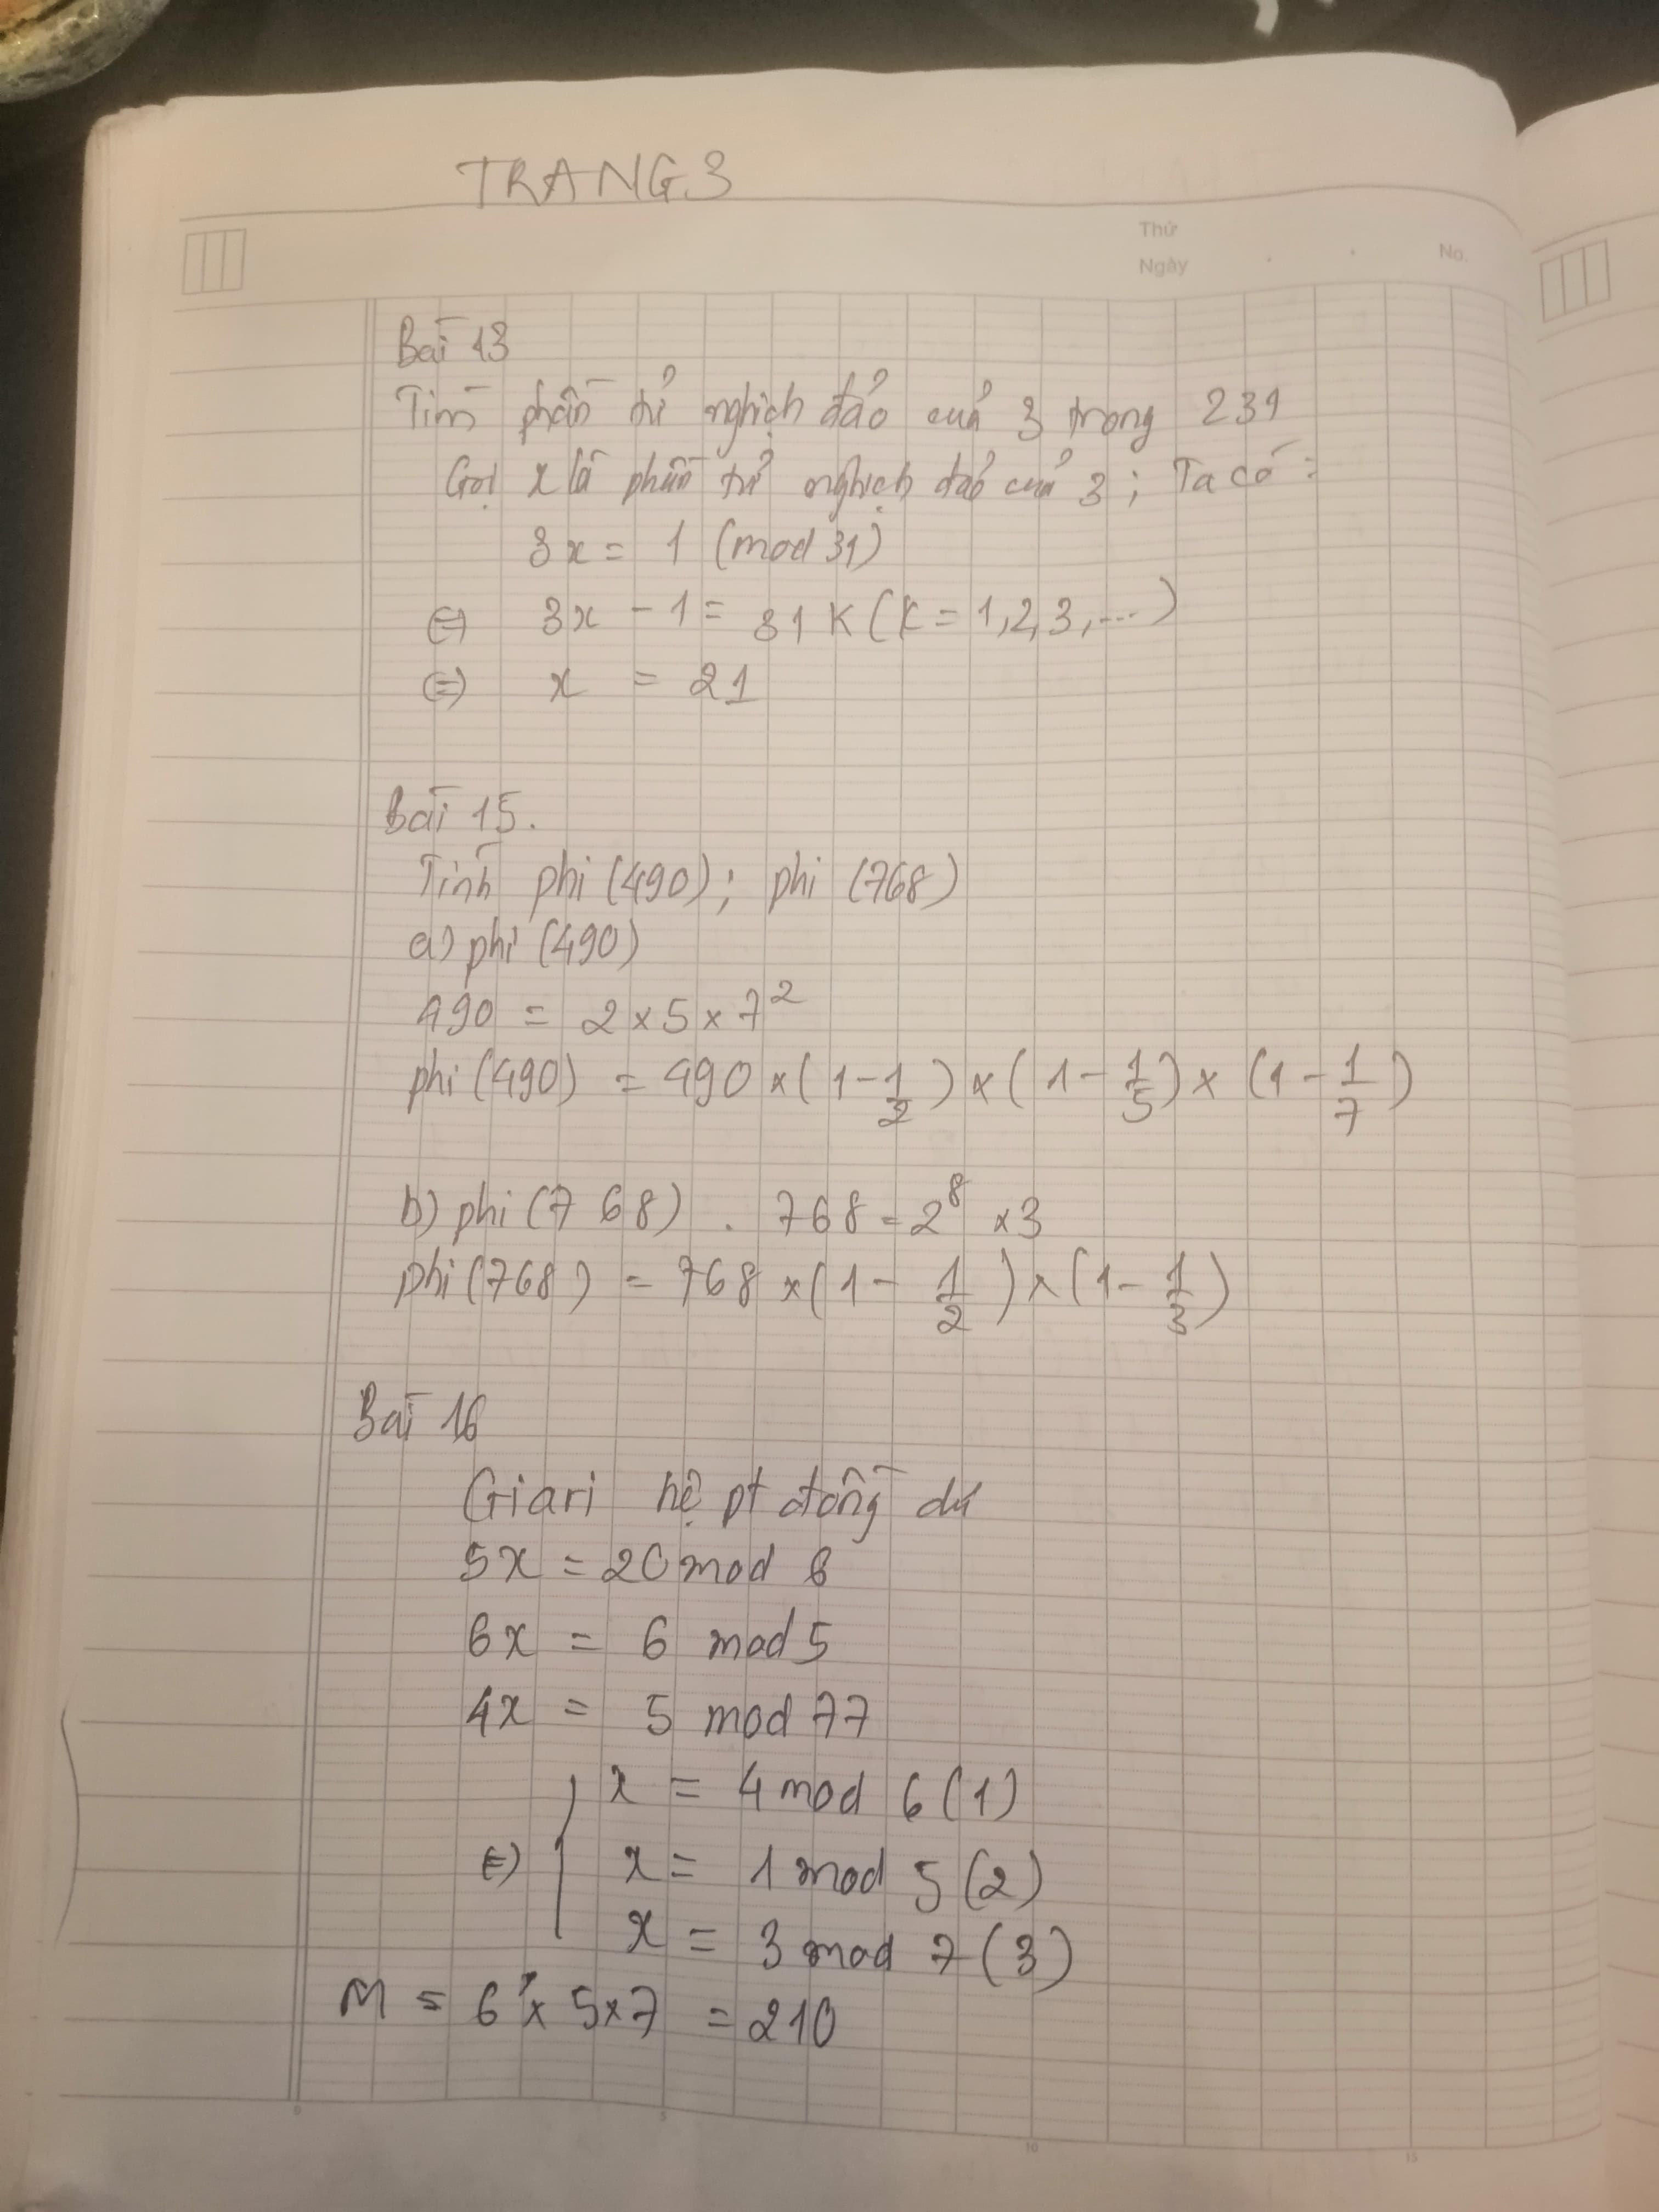 TRANG 3
Thứ
Ngày
No.
Bài 13
Tìm phần tử nghịch đảo của 3 trong 231
Gọi x là phần tử nghịch đảo của 3; Ta có:
3x = 1 (mod 31)
⇔ 3x - 1 = 31K (K = 1,2,3,...)
⇔ x = 21
Bài 15.
Tính phi(490); phi (768)
a) phi (490)
490 = 2 x 5 x 7²
phi (490) = 490 x (1 - 1/2) x (1 - 1/5) x (1 - 1/7)
b) phi (768). 768 = 2⁸ x 3
phi (768) = 768 x (1 - 1/2) x (1 - 1/3)
Bài 16
Giari hệ pt đồng dư
5x = 20 mod 6
6x = 6 mod 5
4x = 5 mod 77
x = 4 mod 6 (1)
⇔ x = 1 mod 5 (2)
x = 3 mod 7 (3)
M = 6 x 5 x 7 = 210
0 5 10 15